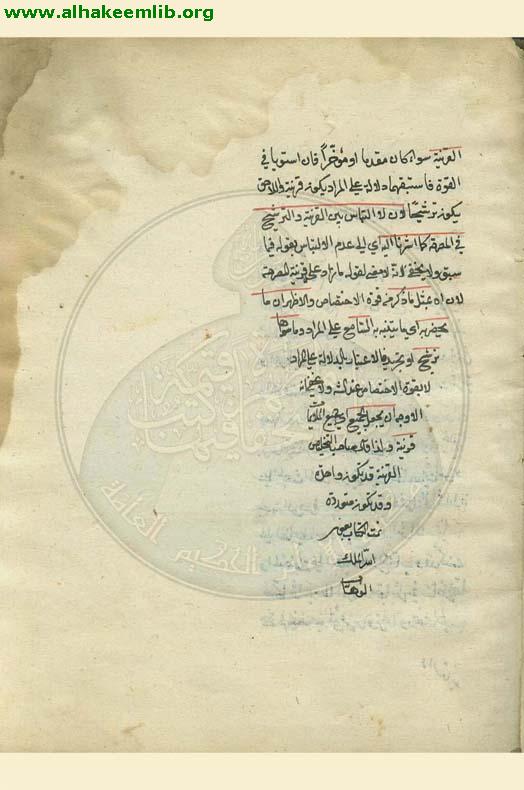 www.alhakeemlib.org
القرينة سواء كان مقدما او مؤخّراً فان استويا فى
القوة فاسبقهما دلالة على المراد يكون قرينة واللاحق
يكون ترشيحًا لان لا التباس بين القرينة والترشيح
فى المصرحة كما اشرنا اليه اى الى عدم الالتباس بقوله فيما
سبق ولا يخفى لانه لا معنى لقوله ما زاد على قرينة المصرحة
لان اه عبّل ما ذكر من قوة الاختصاص والاظهر ان ما
يحضر به اى ما يتنبه به السامع على المراد وما سواها
ترشيح او تجريد فالاعتبار بالدلالة على المراد
لا بقوة الاختصاص عندك ولا
الاوجه ان يجعل الجميع اى جميع
قرينة ولذا قال صاحب التلخيص
القرينة قد تكون واحدة
وقد تكون متعددة
تمت الكتاب بعون
الله الملك
الوهاب